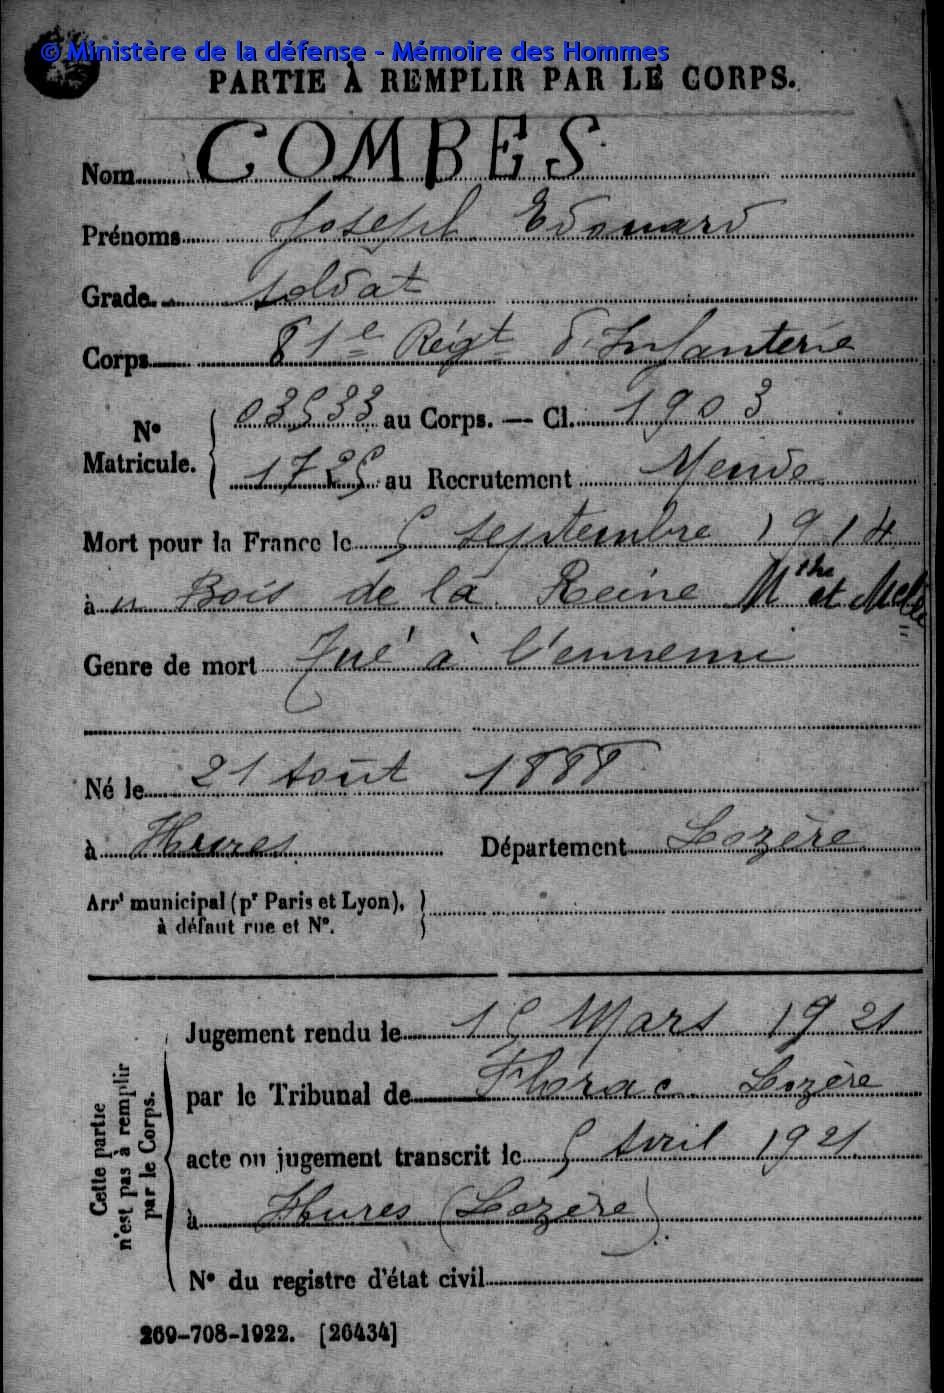 © Ministère de la défense - Mémoire des Hommes
PARTIE À REMPLIR PAR LE CORPS.
Nom COMBES
Prénoms Joseph Edouard
Grade soldat
Corps 81e Régt d'Infanterie
No Matricule. 03533 au Corps. — Cl. 1903
1725 au Recrutement Mende
Mort pour la France le 5 septembre 1914
à u Bois de la Reine Mthe et Melle
Genre de mort Tué à l'ennemi
Né le 21 Août 1888
à Hures Département Lozère
Arrt municipal (pr Paris et Lyon),
à défaut rue et No.
Cette partie n'est pas à remplir par le Corps.
Jugement rendu le 15 Mars 1921
par le Tribunal de Florac Lozère
acte ou jugement transcrit le 5 Avril 1921
à Hures (Lozère)
No du registre d'état civil
269-708-1922. [26434]